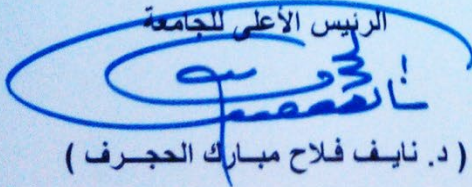 الرئيس الأعلى للجامعة
( د. نايـف فـلاح مبـارك الحجـرف )